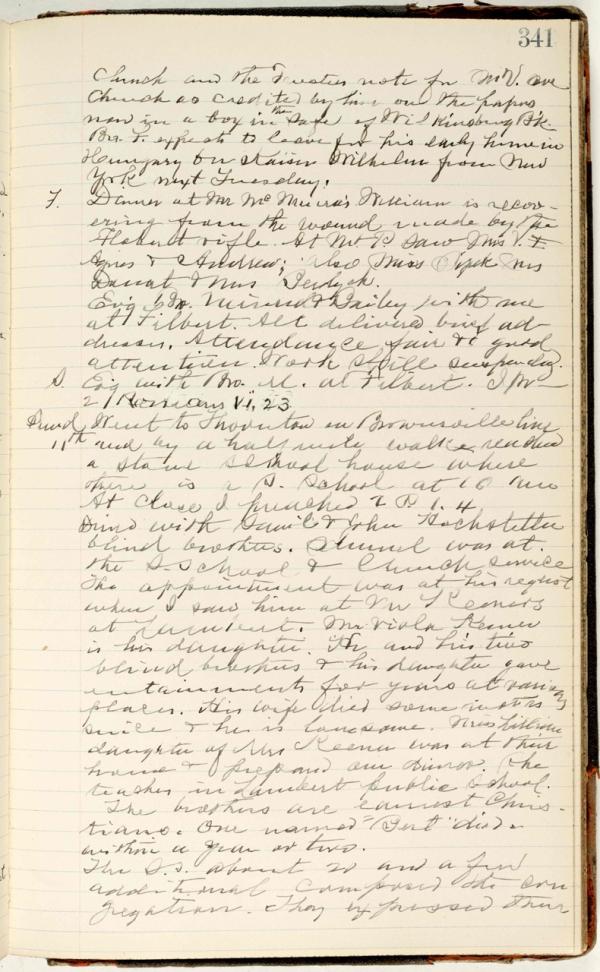 341
Church and the Trustees note for Mt. V. ave
Church as credited by him on the papers
now in a box in the safe of Wilkinsburg Bk
Bro. F. expects to leave for his early home in
Hungary on Kaiser Wilhelm from New
York next Tuesday.
F. Dinner at Mr McMurra's William is recov-
ering from the wound made by the
Flobert rifle. At Mt. P. saw Mrs V. F.
Agnes & Andrew; also Miss Mrs
& Mrs
Ev'g Mr. & Gailey with me
at Filbert. All delivered brief ad-
dresses. Attendance fair & good
attention. Work still suspended.
S. Ev'g with Bro. M. at Filbert. I pr
21 Romans VI, 23
Sund, Went to Thornton on Brownsville line
11th and by a half mile walk reached
a stone school house where
there is a S. School at 10 am
At close I preached 2 P 1.4
Dined with Sam'l & John Hochstetler
blind brothers. Samuel was at
the S. School & Church service
The appointment was at his request
when I saw him at Mr Keener's
at Lambert. Mr Viola Keener
is his daughter. He and his two
blind brothers & his daughter gave
entainments for years at various
places. His wife died some
since & he is lonesome. Miss Lillian
daughter of Mrs Keener was at their
home & prepared our dinner. She
teaches in Lambert public school.
The brothers are earnest Chris-
tians. One named "Bert" died
within a year or two.
The S. S. about 20 and a few
additional composed the con
gregation. They expressed their